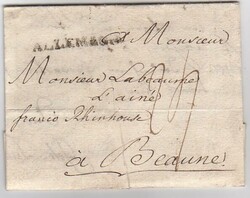 ALLEMAGNE
A Monsieur
Monsieur Labeaume
L'ainé
franco Rhinhouse
à Beaune